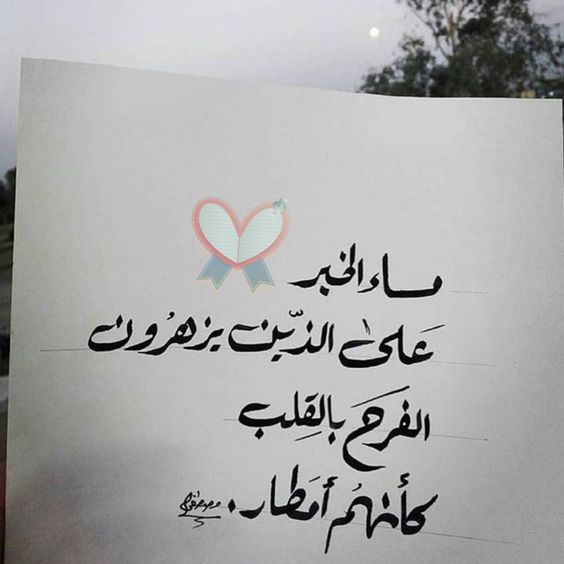 مساء الخير
عَلىٰ الذّين يزهرُون
الفرَح بالِقلِب
كأنهُم أمَطار.
مصطفى